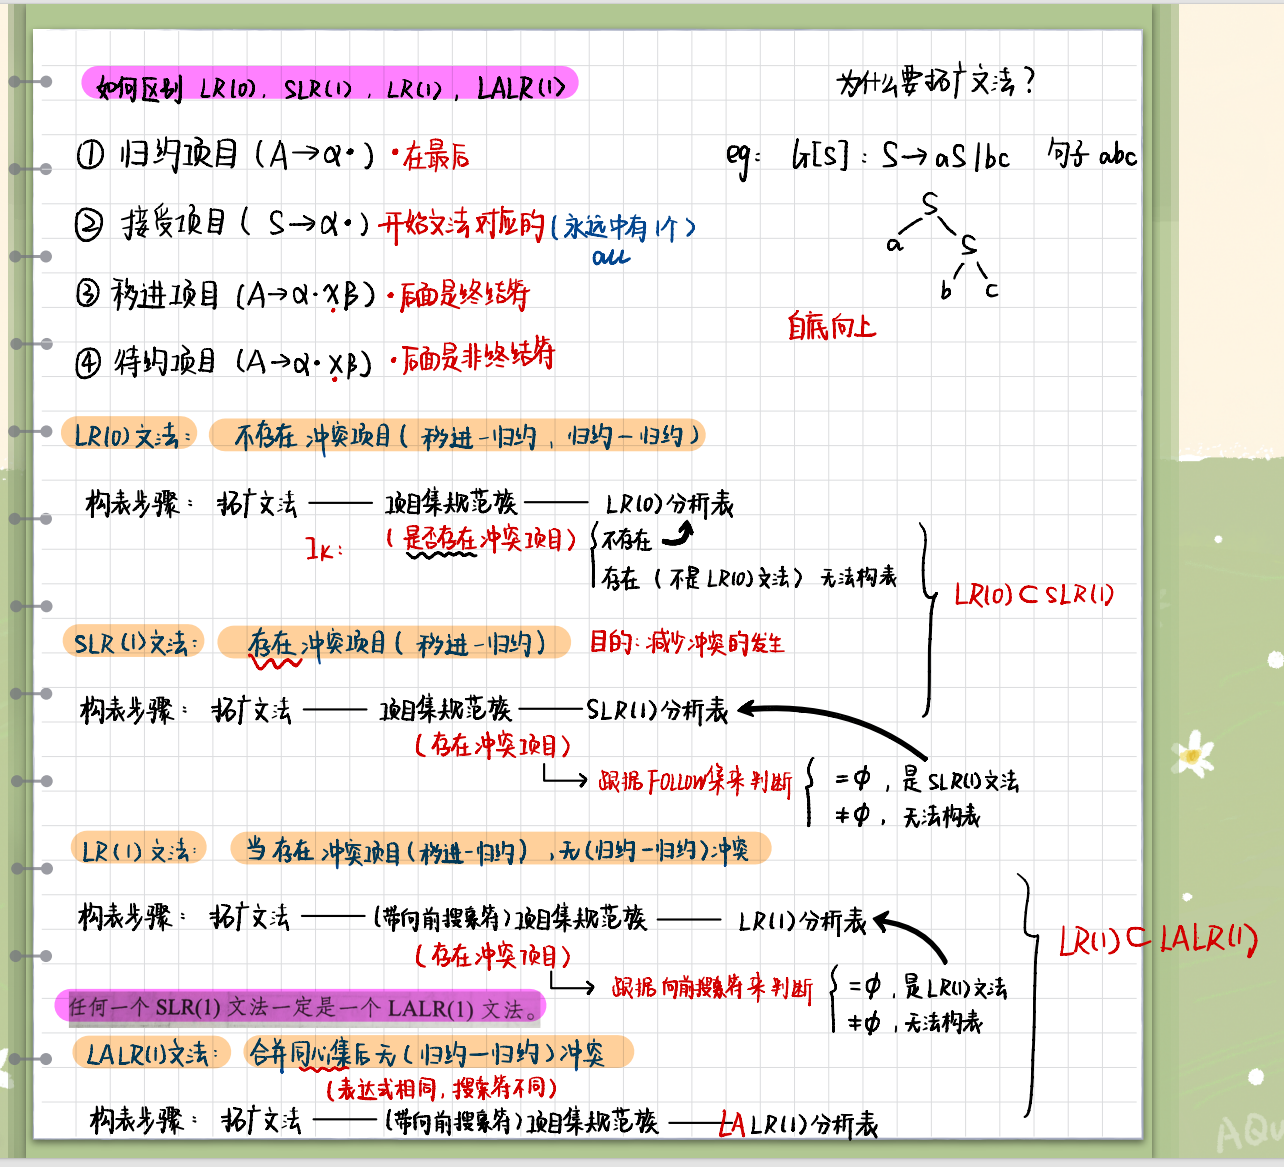 如何区别 LR(0), SLR(1), LR(1), LALR(1)
为什么要拓广文法?
① 归约项目 (A→α·) ·在最后
eg: G[S]: S→aS|bc 句子 abc
② 接受项目 (S→α·) 开始文法对应的 (永远中有1个)
all
S
a S
b c
③ 移进项目 (A→α·Xβ) ·后面是终结符
自底向上
④ 待约项目 (A→α·Xβ) ·后面是非终结符
LR(0)文法: 不存在冲突项目 (移进-归约, 归约-归约)
构表步骤: 拓广文法 —— 项目集规范族 —— LR(0)分析表
Ik: (是否存在冲突项目) { 不存在
存在 (不是LR(0)文法) 无法构表
LR(0)⊂SLR(1)
SLR(1)文法: 存在冲突项目 (移进-归约) 目的:减少冲突的发生
构表步骤: 拓广文法 —— 项目集规范族 —— SLR(1)分析表
(存在冲突项目)
跟据FOLLOW集来判断 { =φ, 是SLR(1)文法
≠φ, 无法构表
LR(1)文法: 当存在冲突项目(移进-归约), 无(归约-归约)冲突
构表步骤: 拓广文法 —— (带向前搜索符)项目集规范族 —— LR(1)分析表
LR(1)⊂LALR(1)
(存在冲突项目)
跟据向前搜索符来判断 { =φ, 是LR(1)文法
≠φ, 无法构表
任何一个 SLR(1) 文法一定是一个 LALR(1) 文法。
LALR(1)文法: 合并同心集后无(归约-归约)冲突
(表达式相同, 搜索符不同)
构表步骤: 拓广文法 —— (带向前搜索符)项目集规范族 —— LALR(1)分析表